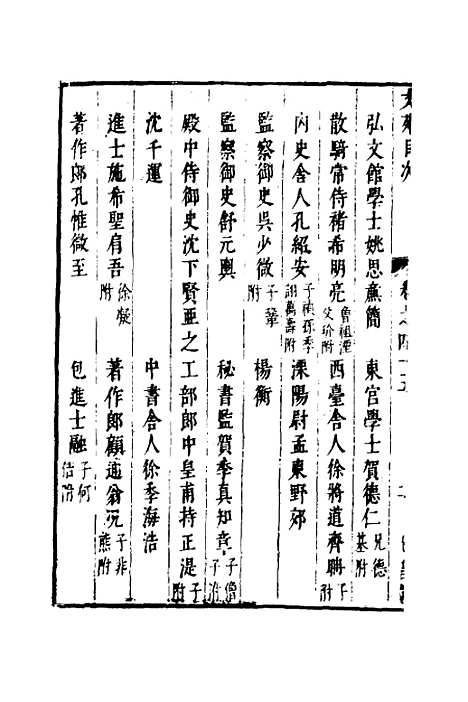 弘文館學士姚思廉簡　東宮學士賀德仁 兄德基附
散騎常侍褚希明亮 曾祖湮父玠附　西臺舍人徐將道齊聃 子附
內史舍人孔紹安 子禎孫季詡萬壽附　溧陽尉孟東野郊
監察御史吳少微 子鞏附　楊衡
監察御史舒元輿　秘書監賀季真知章 子僧子附
殿中侍御史沈下賢亞之　工部郎中皇甫持正湜 子附
沈千運　中書舍人徐季海浩
進士施希聖肩吾 徐凝附　著作郎顧逋翁况 子非熊附
著作郎孔惟微至　包進士融 子何佶附